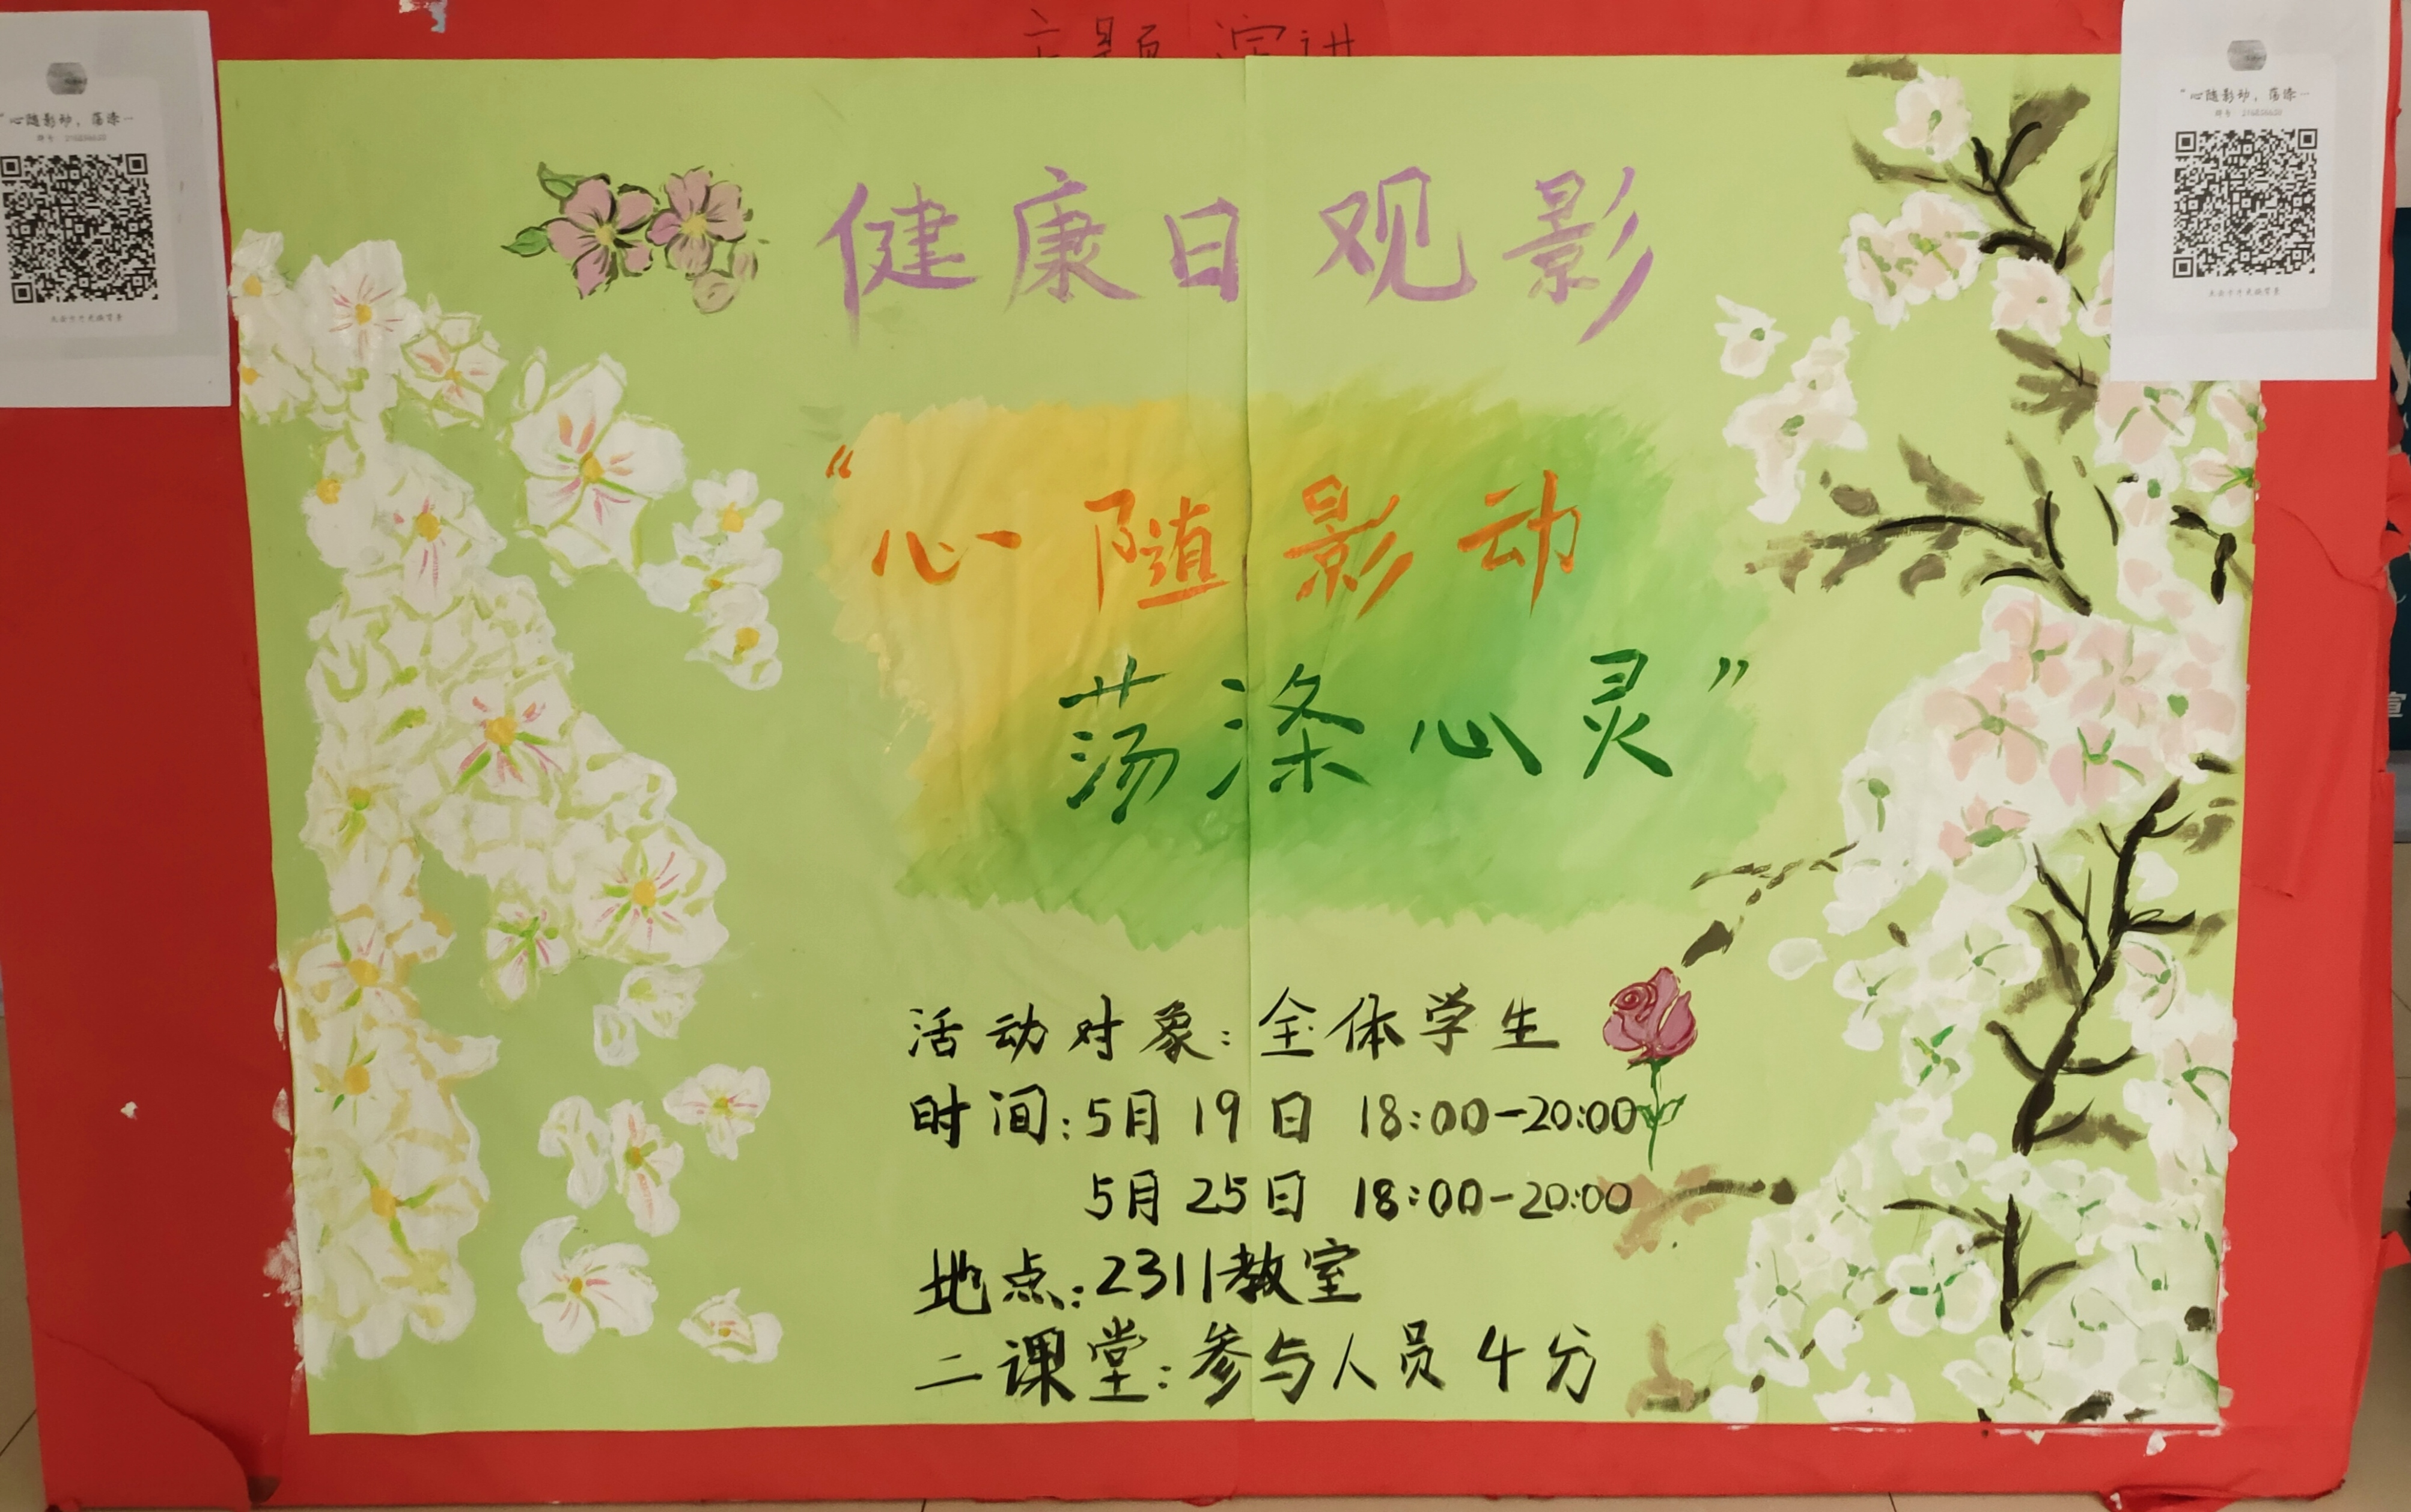 主题演讲
"心随影动，荡涤…
"心随影动，荡涤…
健康日观影
"心随影动
荡涤心灵"
活动对象：全体学生
时间：5月19日 18:00-20:00
5月25日 18:00-20:00
地点：2311教室
二课堂：参与人员4分
宣